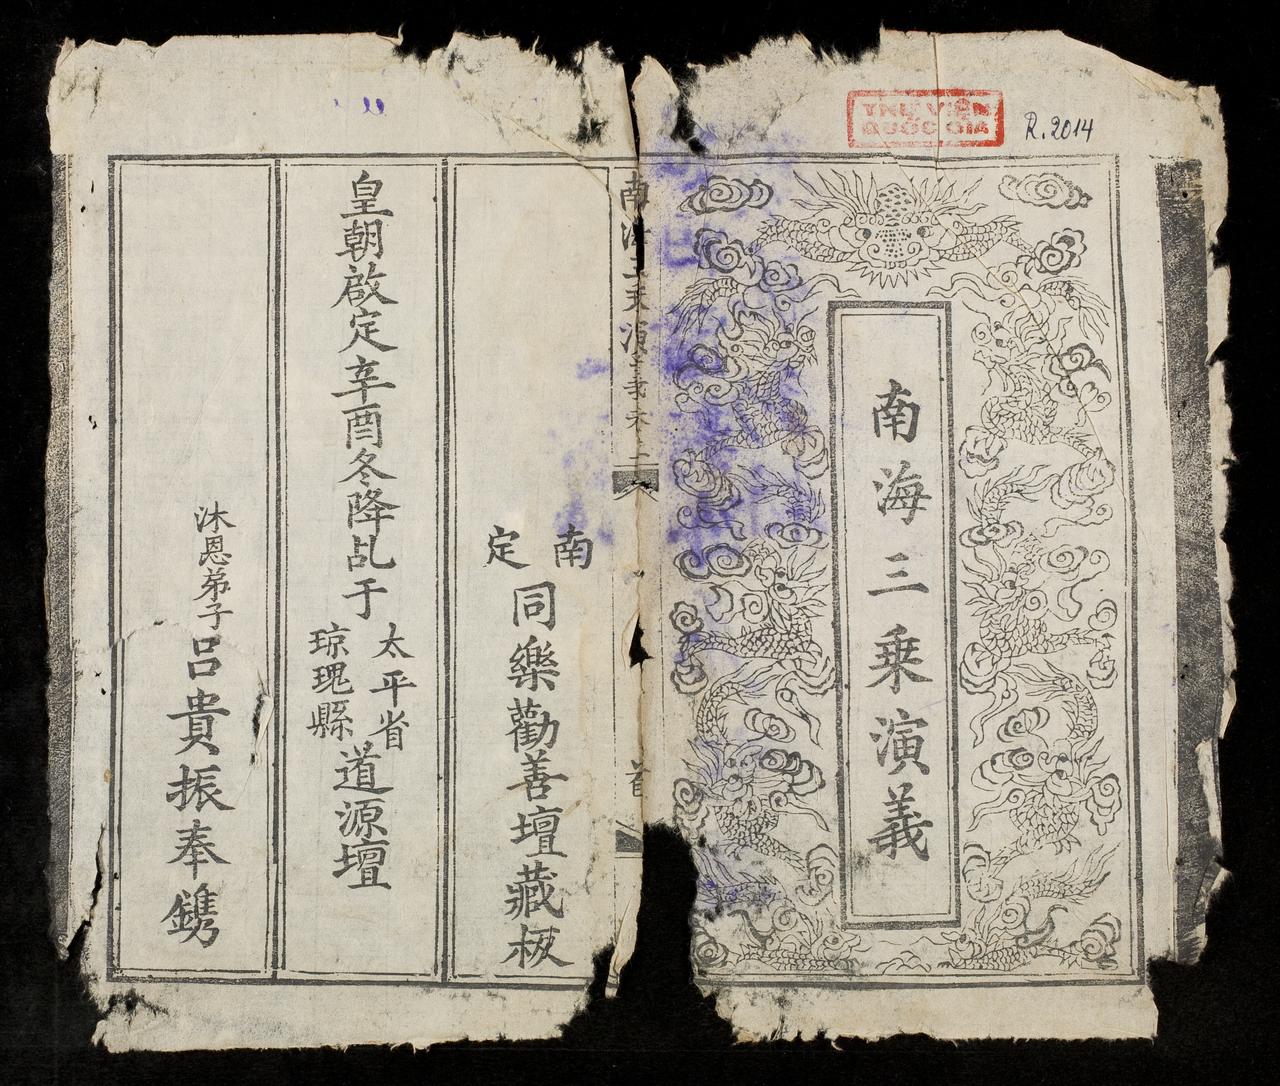 THƯ VIỆN
QUỐC GIA
R.2014
南海三乗演義
南定
同樂勸善壇藏板
皇朝啟定辛酉冬降乩于
太平省
琼瑰縣
道源壇
沐恩弟子
呂貴振奉鐫